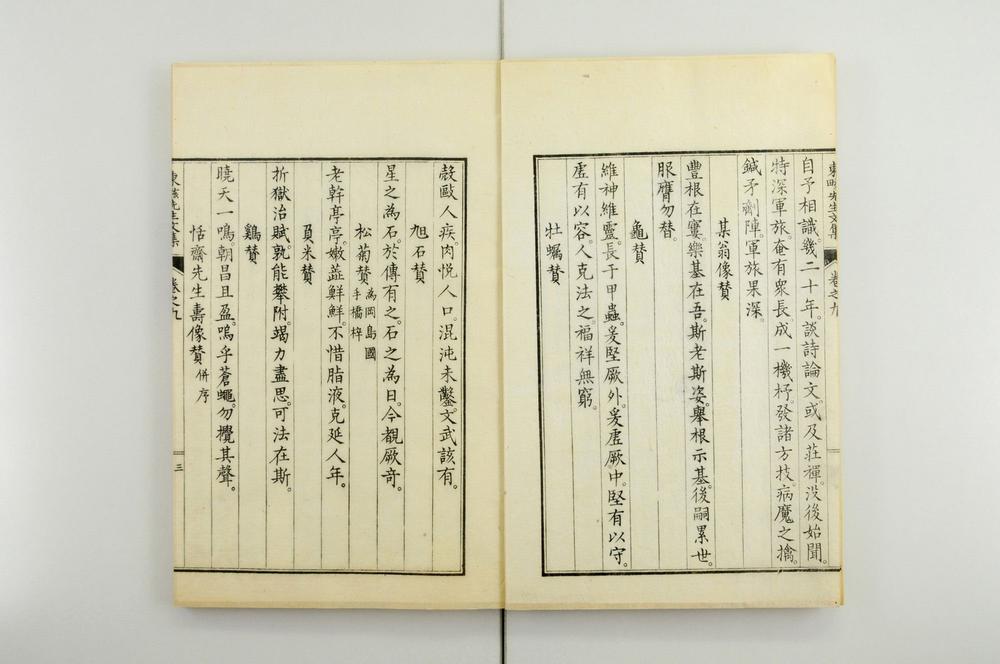 自予相識。幾二十年。談詩論文。或及莊禪。没後始聞。
特深軍旅。奄有衆長。成一機杼。發諸方技。病魔之擒。
鍼矛劑陣。軍旅果深。
某翁像賛
豐根在寠。樂基在吾。斯老斯姿。舉根示基。後嗣累世。
服膺勿替。
龜賛
維神維靈。長于甲蟲。爰堅厥外。爰虛厥中。堅有以守。
虛有以容。人克法之。福祥無窮。
牡蠣賛
殼毆人疾。肉悦人口。混沌未鑿。文武該有。
旭石賛
星之為石。於傳有之。石之為日。今覩厥奇。
松菊賛 為岡島國手橘梓
老幹亭亭。嫩蘂鮮鮮。不惜脂液。克延人年。
負米賛
折獄治賦。孰能攀附。竭力盡思。可法在斯。
鷄賛
曉天一鳴。朝昌且盈。嗚乎蒼蠅。勿攪其聲。
恬齋先生壽像賛 併序
先生文集 卷之九 三